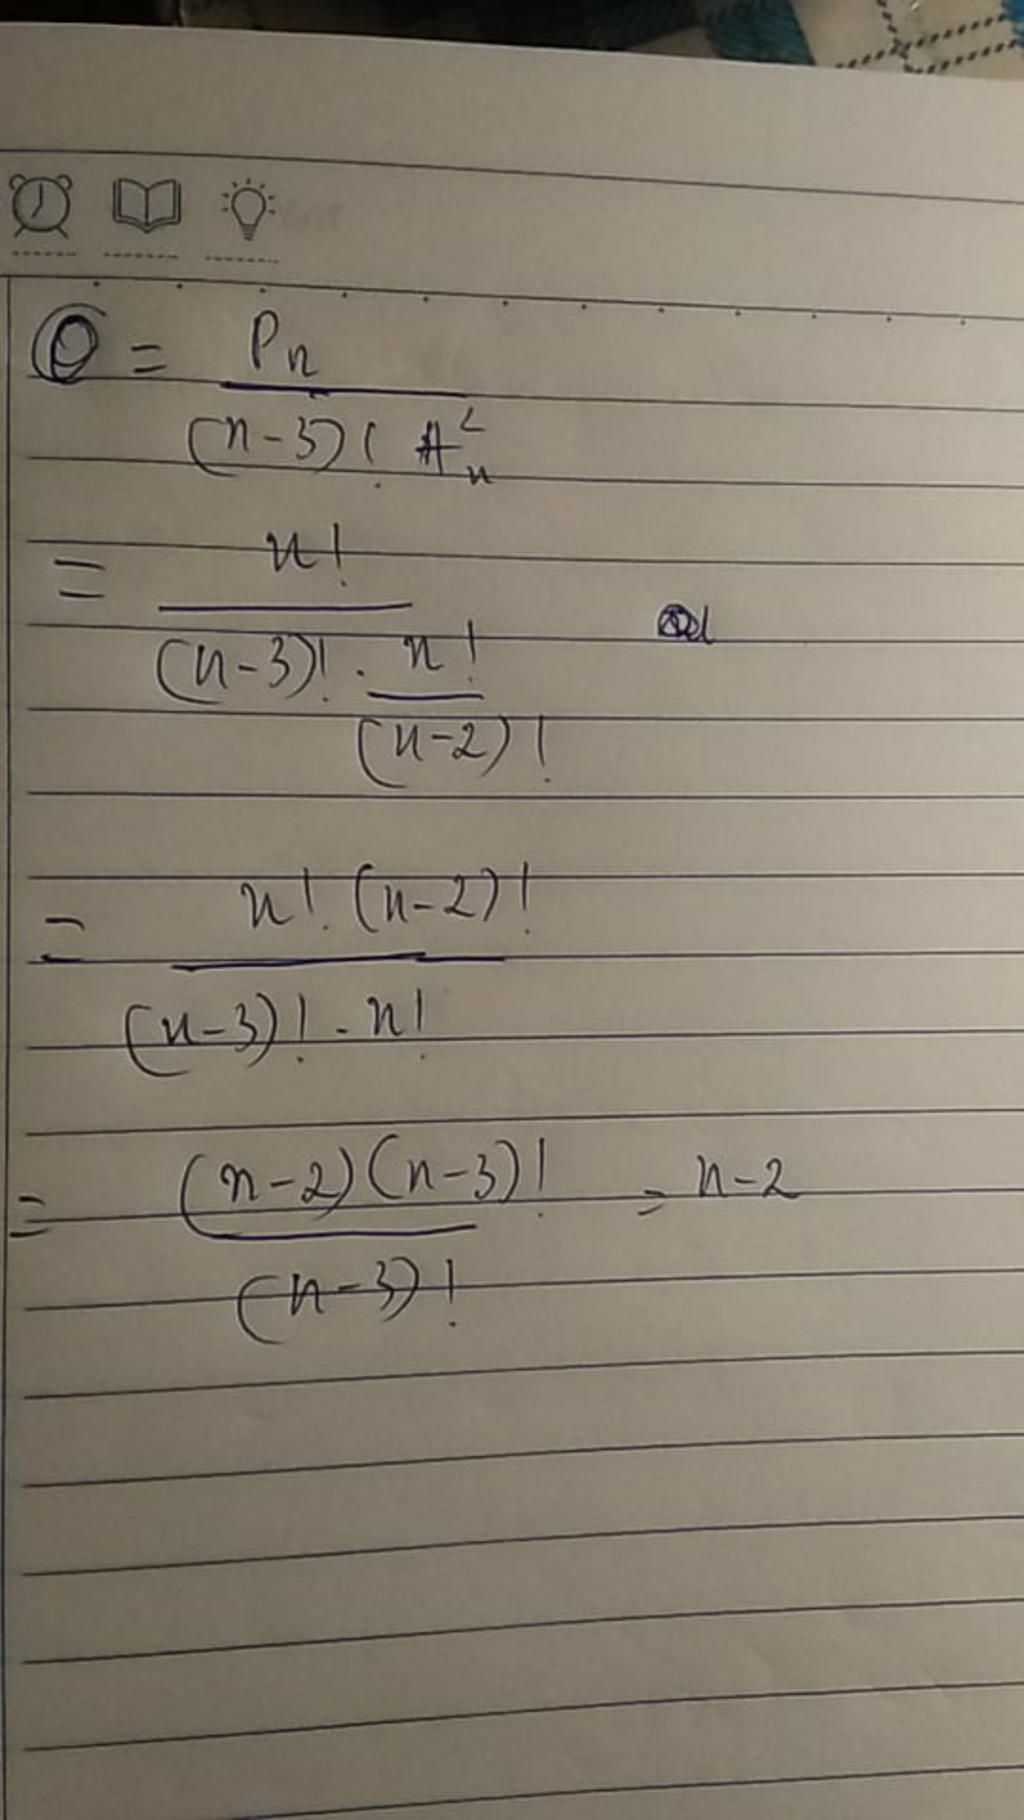 Θ = Pn / (n-3)! A²n
= n! / (n-3)! . n! / (n-2)!
= n! (n-2)! / (n-3)! . n!
= (n-2)(n-3)! / (n-3)! = n-2